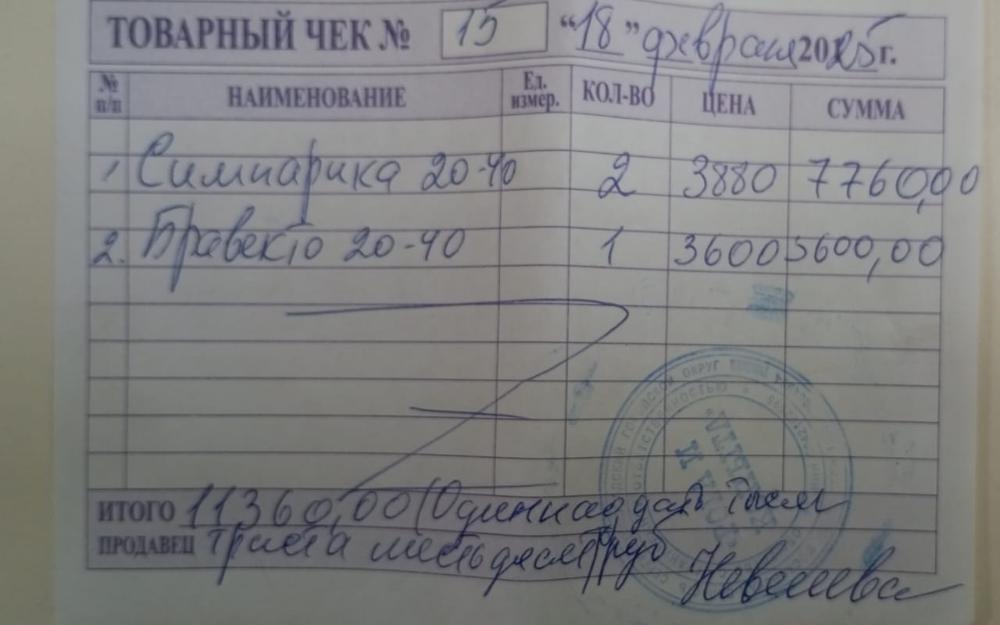 ТОВАРНЫЙ ЧЕК № 15 "18" февраля 2025 г.
№ п/п НАИМЕНОВАНИЕ Ед. измер. КОЛ-ВО ЦЕНА СУММА
1 Симпарика 20-40 2 3880 7760,00
2. Бравекто 20-40 1 3600 3600,00
ИТОГО 11360,00 (Одиннадцать тысяч
ПРОДАВЕЦ триста шестьдесят) руб
ГОРОДСКОЙ ОКРУГ